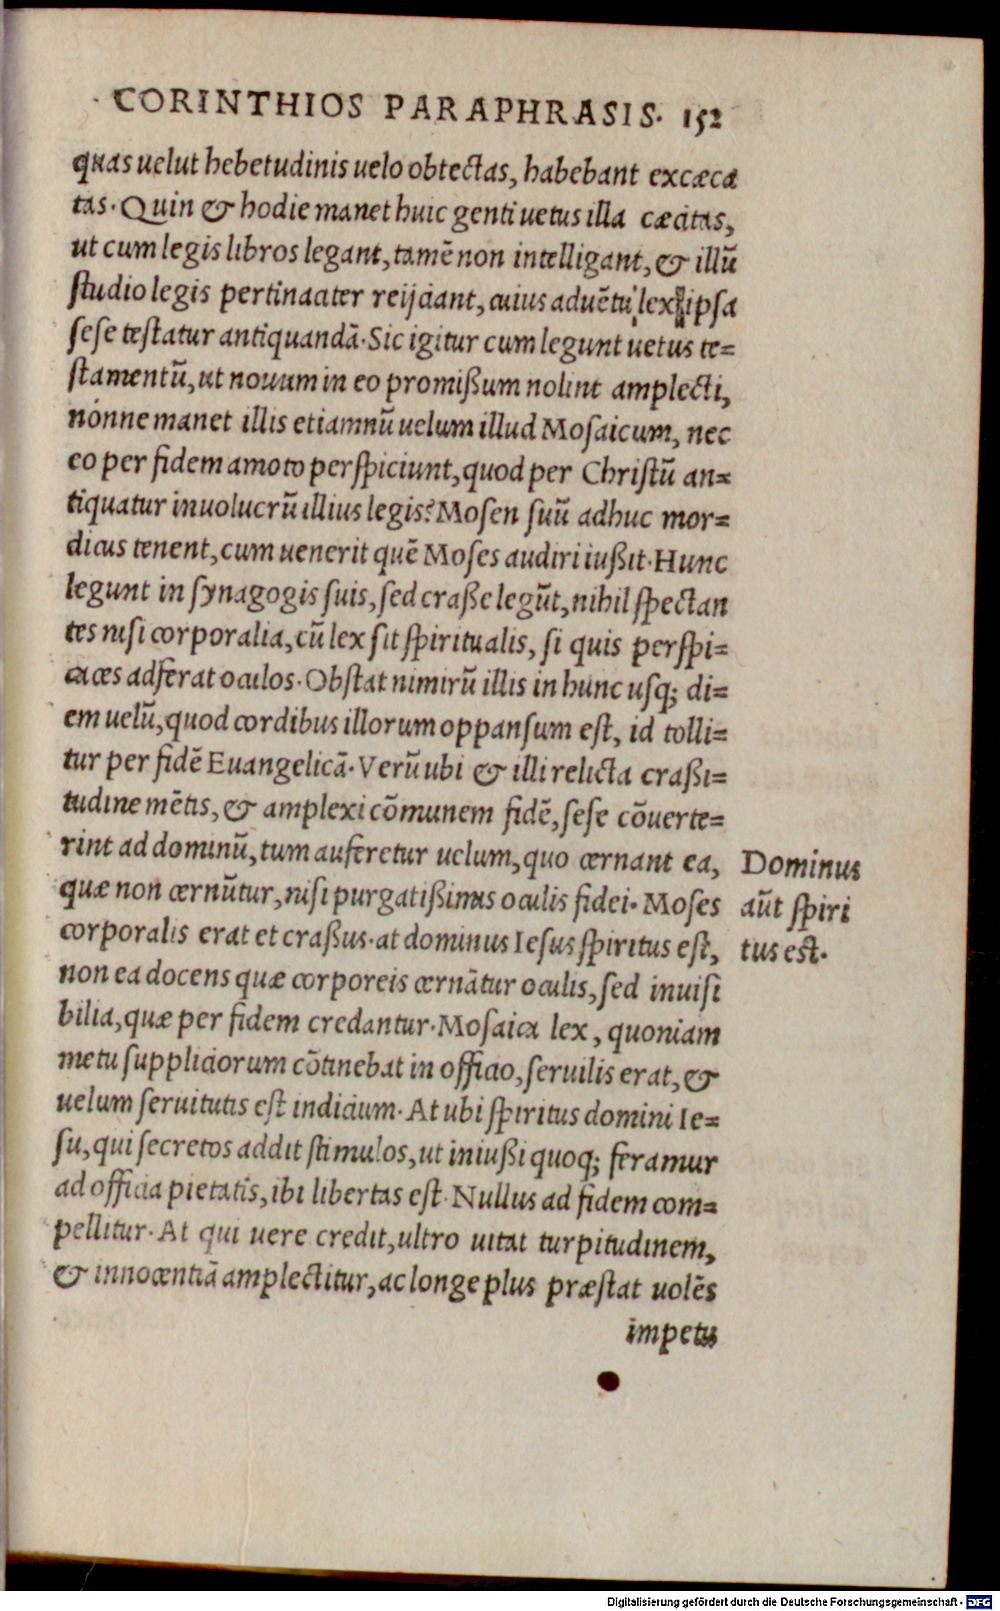 CORINTHIOS PARAPHRASIS. 152
quas uelut hebetudinis uelo obtectas, habebant excæca
tas. Quin & hodie manet huic genti uetus illa cæcitas,
ut cum legis libros legant, tamē non intelligant, & illū
studio legis pertinaciter reijciant, cuius aduētu lex ipsa
sese testatur antiquandā. Sic igitur cum legunt uetus te=
stamentū, ut nouum in eo promißum nolint amplecti,
nónne manet illis etiamnū uelum illud Mosaicum, nec
eo per fidem amoto perspiciunt, quod per Christū an=
tiquatur inuolucrū illius legis? Mosen suū adhuc mor=
dicus tenent, cum uenerit quē Moses audiri iußit. Hunc
legunt in synagogis suis, sed craße legūt, nihil spectan
tes nisi corporalia, cū lex sit spiritualis, si quis perspi=
caces adferat oculos. Obstat nimirū illis in hunc usq; di=
em uelū, quod cordibus illorum oppansum est, id tolli=
tur per fidē Euangelicā. Verū ubi & illi relicta craßi=
tudine mētis, & amplexi cōmunem fidē, sese cōuerte=
rint ad dominū, tum auferetur uelum, quo cernant ea,
quæ non cernūtur, nisi purgatißimis oculis fidei. Moses
corporalis erat et craßus. at dominus Iesus spiritus est,
non ea docens quæ corporeis cernātur oculis, sed inuisi
bilia, quæ per fidem credantur. Mosaica lex, quoniam
metu suppliciorum cōtinebat in officio, seruilis erat, &
uelum seruitutis est indicium. At ubi spiritus domini Ie=
su, qui secretos addit stimulos, ut iniußi quoq; feramur
ad officia pietatis, ibi libertas est. Nullus ad fidem com=
pellitur. At qui uere credit, ultro uitat turpitudinem,
& innocentiā amplectitur, ac longe plus præstat uolēs
impetu
Dominus
aūt spiri
tus est.
Digitalisierung gefördert durch die Deutsche Forschungsgemeinschaft - DFG